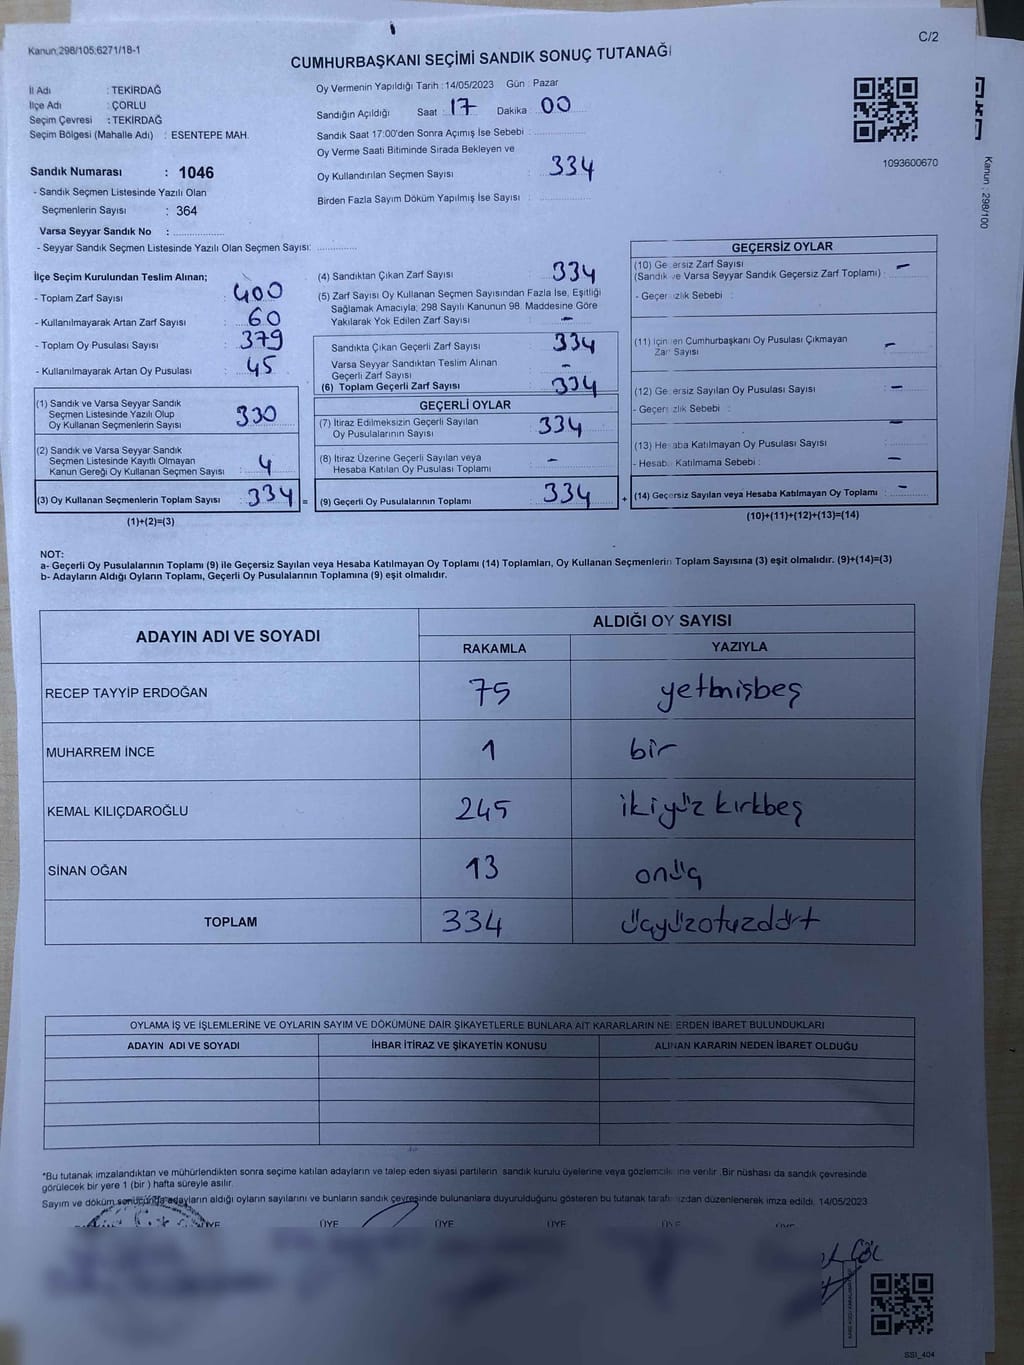 Kanun:298/105;6271/18-1
C/2
CUMHURBAŞKANI SEÇİMİ SANDIK SONUÇ TUTANAĞI
İl Adı : TEKİRDAĞ
İlçe Adı : ÇORLU
Seçim Çevresi : TEKİRDAĞ
Seçim Bölgesi (Mahalle Adı) : ESENTEPE MAH.
Sandık Numarası : 1046
- Sandık Seçmen Listesinde Yazılı Olan
Seçmenlerin Sayısı : 364
Varsa Seyyar Sandık No :
- Seyyar Sandık Seçmen Listesinde Yazılı Olan Seçmen Sayısı:
Oy Vermenin Yapıldığı Tarih : 14/05/2023 Gün : Pazar
Sandığın Açıldığı Saat : 17 Dakika : 00
Sandık Saat 17:00'den Sonra Açımış İse Sebebi :
Oy Verme Saati Bitiminde Sırada Bekleyen ve
Oy Kullandırılan Seçmen Sayısı : 334
Birden Fazla Sayım Döküm Yapılmış İse Sayısı :
1093600670
Kanun : 298/100
İlçe Seçim Kurulundan Teslim Alınan;
- Toplam Zarf Sayısı : 400
- Kullanılmayarak Artan Zarf Sayısı : 60
- Toplam Oy Pusulası Sayısı : 379
- Kullanılmayarak Artan Oy Pusulası : 45
(1) Sandık ve Varsa Seyyar Sandık
Seçmen Listesinde Yazılı Olup
Oy Kullanan Seçmenlerin Sayısı : 330
(2) Sandık ve Varsa Seyyar Sandık
Seçmen Listesinde Kayıtlı Olmayan
Kanun Gereği Oy Kullanan Seçmen Sayısı : 4
(3) Oy Kullanan Seçmenlerin Toplam Sayısı : 334 =
(1)+(2)=(3)
(4) Sandıktan Çıkan Zarf Sayısı : 334
(5) Zarf Sayısı Oy Kullanan Seçmen Sayısından Fazla İse, Eşitliği
Sağlamak Amacıyla; 298 Sayılı Kanunun 98. Maddesine Göre
Yakılarak Yok Edilen Zarf Sayısı : -
Sandıkta Çıkan Geçerli Zarf Sayısı : 334
Varsa Seyyar Sandıktan Teslim Alınan
Geçerli Zarf Sayısı : -
(6) Toplam Geçerli Zarf Sayısı : 334
GEÇERLİ OYLAR
(7) İtiraz Edilmeksizin Geçerli Sayılan
Oy Pusulalarının Sayısı : 334
(8) İtiraz Üzerine Geçerli Sayılan veya
Hesaba Katılan Oy Pusulası Toplamı : -
(9) Geçerli Oy Pusulalarının Toplamı : 334 +
GEÇERSİZ OYLAR
(10) Geçersiz Zarf Sayısı
(Sandık ve Varsa Seyyar Sandık Geçersiz Zarf Toplamı) : -
- Geçersizlik Sebebi :
(11) İçinden Cumhurbaşkanı Oy Pusulası Çıkmayan
Zarf Sayısı : -
(12) Geçersiz Sayılan Oy Pusulası Sayısı : -
- Geçersizlik Sebebi : -
(13) Hesaba Katılmayan Oy Pusulası Sayısı :
- Hesaba Katılmama Sebebi : -
(14) Geçersiz Sayılan veya Hesaba Katılmayan Oy Toplamı : -
(10)+(11)+(12)+(13)=(14)
NOT:
a- Geçerli Oy Pusulalarının Toplamı (9) ile Geçersiz Sayılan veya Hesaba Katılmayan Oy Toplamı (14) Toplamları, Oy Kullanan Seçmenlerin Toplam Sayısına (3) eşit olmalıdır. (9)+(14)=(3)
b- Adayların Aldığı Oyların Toplamı, Geçerli Oy Pusulalarının Toplamına (9) eşit olmalıdır.
ADAYIN ADI VE SOYADI ALDIĞI OY SAYISI
RAKAMLA YAZIYLA
RECEP TAYYİP ERDOĞAN 75 yetmişbeş
MUHARREM İNCE 1 bir
KEMAL KILIÇDAROĞLU 245 ikiyüz kırkbeş
SİNAN OĞAN 13 onüç
TOPLAM 334 üçyüzotuzdört
OYLAMA İŞ VE İŞLEMLERİNE VE OYLARIN SAYIM VE DÖKÜMÜNE DAİR ŞİKAYETLERLE BUNLARA AİT KARARLARIN NELERDEN İBARET BULUNDUKLARI
ADAYIN ADI VE SOYADI İHBAR İTİRAZ VE ŞİKAYETİN KONUSU ALINAN KARARIN NEDEN İBARET OLDUĞU
*Bu tutanak imzalandıktan ve mühürlendikten sonra seçime katılan adayların ve talep eden siyasi partilerin sandık kurulu üyelerine veya gözlemcilerine verilir. Bir nüshası da sandık çevresinde
görülecek bir yere 1 (bir ) hafta süreyle asılır.
Sayım ve döküm sonucunda adayların aldığı oyların sayılarını ve bunların sandık çevresinde bulunanlara duyurulduğunu gösteren bu tutanak tarafımızdan düzenlenerek imza edildi. 14/05/2023
ÜYE ÜYE ÜYE ÜYE ÜYE ÜYE
SSI_404